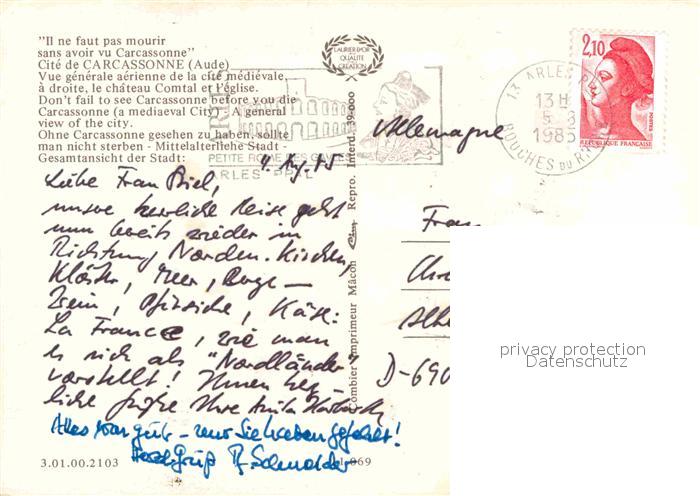 "Il ne faut pas mourir
sans avoir vu Carcassonne"
Cité de CARCASSONNE (Aude)
Vue générale aérienne de la cité médiévale,
à droite, le château Comtal et l'église.
Don't fail to see Carcassonne before you die
Carcassonne (a mediaeval City) - A general
view of the city.
Ohne Carcassonne gesehen zu haben, sollte
man nicht sterben - Mittelalterlehe Stadt -
Gesamtansicht der Stadt:
LAURIER D'OR
DE LA
QUALITÉ
CREATION
PETITE ROME DES GAULES
ARLES PPAL
13 ARLES
13 H
5 -8
1985
BOUCHES DU RH
2,10
POSTES
REPUBLIQUE FRANÇAISE
Allemagne
4. Aug. 85
Liebe Frau Biel,
unsre herrliche Reise geht
nun bereits wieder in
Richtung Norden. Kirchen,
Klöster, Meer, Berge –
Wein, Pfirsiche, Käse:
La France, wie man
es sich als "Nordländer"
vorstellt! Ihnen herz-
liche Grüße Ihre Anita
Alles war gut – nur Sie haben gefehlt!
Herzl. Gruß R. Schneider
Combier Imprimeur Mâcon Repro. Interd. 39-000
Frau
D-690
privacy protection
Datenschutz
3.01.00.2103